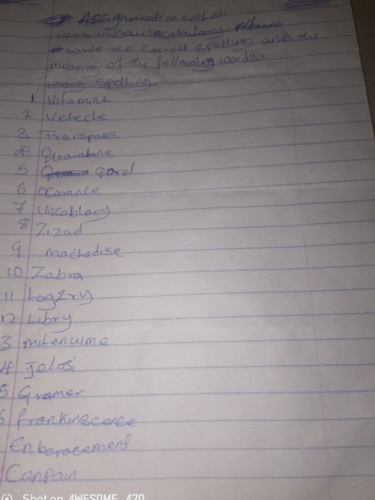 Assignment on
write in your vocabulary Album
write the correct spelling and the
meaning of the following words.
wrong spelling
1 Vitamine
2 Vehecle
3 Transpass
4 Quarantine
5 gord
6 ocorence
7 Vocablary
8 Zizad
9 machadise
10 Zabra
11 Logzry
12 Libry
3 milenuime
4 Jelosi
5 Gramer
6 frankinscence
Enbaracement
Canpain
Shot on AWESOME A70